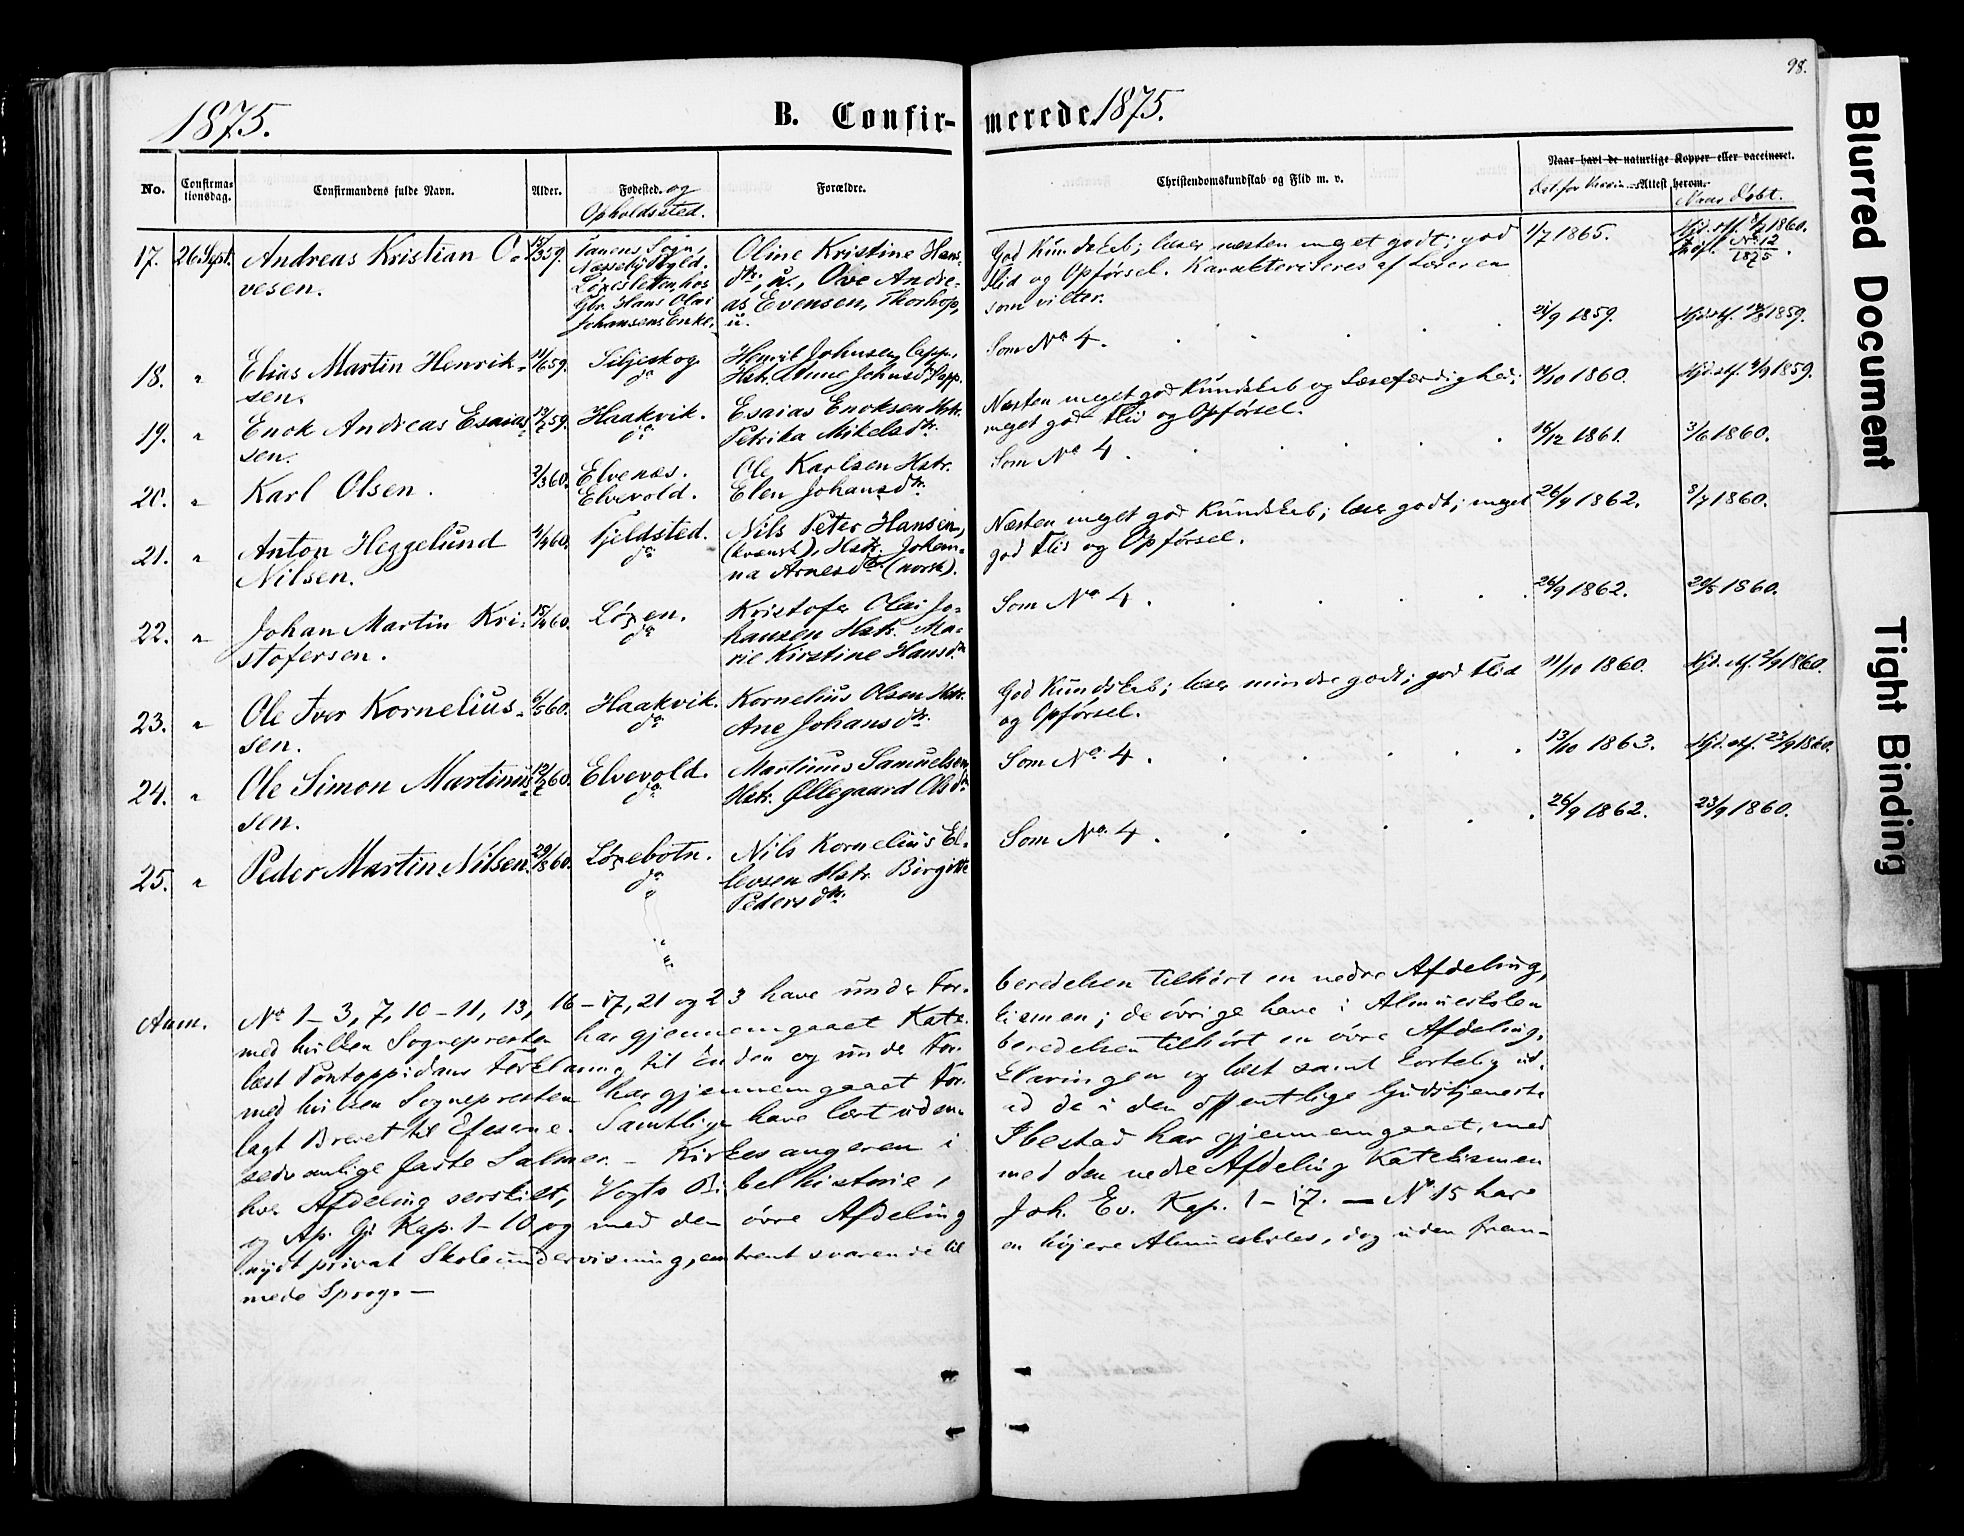 98.
1875.
B. Confir-
merede 1875.
No.
Confirma-
tionsdag.
Confirmandens fulde Navn.
Alder.
Fødested. og
Opholdssted.
Forældre.
Christendomskundskab og Flid m. v.
Naar havt de naturlige Kopper eller vaccineret.
Attest herom.
Naar døbt.
17. 26 Sept. Andreas Kristian O-
vesen.
59.
Tanens Sogn,
Løxesletten, hos
Gbr. Hans Olai
Johansens Enke.
Oline Kristine Hans-
dtr., u., Ove Andre-
as Evensen, Thorhop,
u.
God Kundskab; læser næsten meget godt; god
Flid og Opførsel. Karakteriseres af Læreren
som vilter.
1/7 1865.
Hjd. stf. 1860.
No 12
1875.
18. " Elias Martin Henrik-
sen.
59.
Siljeskog.
do
Henrik Johnsen, lapp.,
Hstr. Anne Johnsdtr. lapp.
Som No 4.
21/9 1859.
Hjd. stf. 1859.
19. " Enok Andreas Esaias-
sen.
59.
Haakvik.
do
Esaias Enoksen Hstr.
Petrika Mikelsdtr.
Næsten meget god Kundskab og Læsefærdighed;
meget god Flid og Opførsel.
14/10 1860.
Hjd. stf. 4/9 1859.
20. " Karl Olsen.
2/3 60.
Elvenæs.
Elvevold.
Ole Karlsen Hstr.
Elen Johansdtr.
Som No 4.
16/12 1861.
3/6 1860.
21. " Anton Heggelund
Nilsen.
60.
Fjeldsted.
do
Nils Peter Hansen,
(kvensk), Hstr. Johan-
na Arnesdtr. (norsk).
Næsten meget god Kundskab; læser godt; meget
god Flid og Opførsel.
26/9 1862.
8/7 1860.
22. " Johan Martin Kri-
stofersen.
15/4 60.
Løxen.
do
Kristofer Olai Jo-
hansen Hstr. Ma-
rie Kirstine Hansdtr.
Som No 4.
26/9 1862.
20/5 1860.
23. " Ole Iver Kornelius-
sen.
6/5 60.
Haakvik.
do
Kornelius Olsen Hstr.
Ane Johansdtr.
God Kundskab; læser mindre godt; god Flid
og Opførsel.
11/10 1860.
Hjd. stf. 2/9 1860.
24. " Ole Simon Martinus-
sen.
60.
Elvevold.
do
Martinus Samuelsen
Hstr. Øllegaard Olsdtr.
Som No 4.
13/10 1863.
Hjd. stf. 23/9 1860.
25. " Peder Martin Nilsen.
29/8 60.
Løxebotn.
do
Nils Kornelius El-
levsen Hstr. Birgitte
Pedersdtr.
Som No 4.
26/9 1862.
23/9 1860.
Anm. No 1-3, 7, 10-11, 13, 16-17, 21 og 23 have under For-
beredelsen tilhørt en nedre Afdeling,
med hvilken Sognepresten har gjennemgaaet Kate-
kismen; de øvrige have i Almueskolen
læst Pontoppidans Forklaring til Enden og under For-
beredelsen tilhørt en øvre Afdeling,
med hvilken Sognepresten har gjennemgaaet For-
klaringen og læst samt kortelig ud-
lagt Brevet til Efeserne. Samtlige have lært uden-
ad de i den offentlige Gudstjeneste
sedvanlige faste Salmer. - Kirkesangeren i
Ibestad har gjennemgaaet, med
hver Afdeling særskilt, Vogts Bibelhistorie,
med den nedre Afdeling Katekismen
og Ap. Gj. Kap. 1-10, og med den øvre Afdeling
Joh. Ev. Kap. 1-17. - No 15 har
nydt privat Skoleundervisning, omtrent svarende til
en højere Almueskoles, dog uden frem-
mede Sprog. -
Blurred Document
Tight Binding